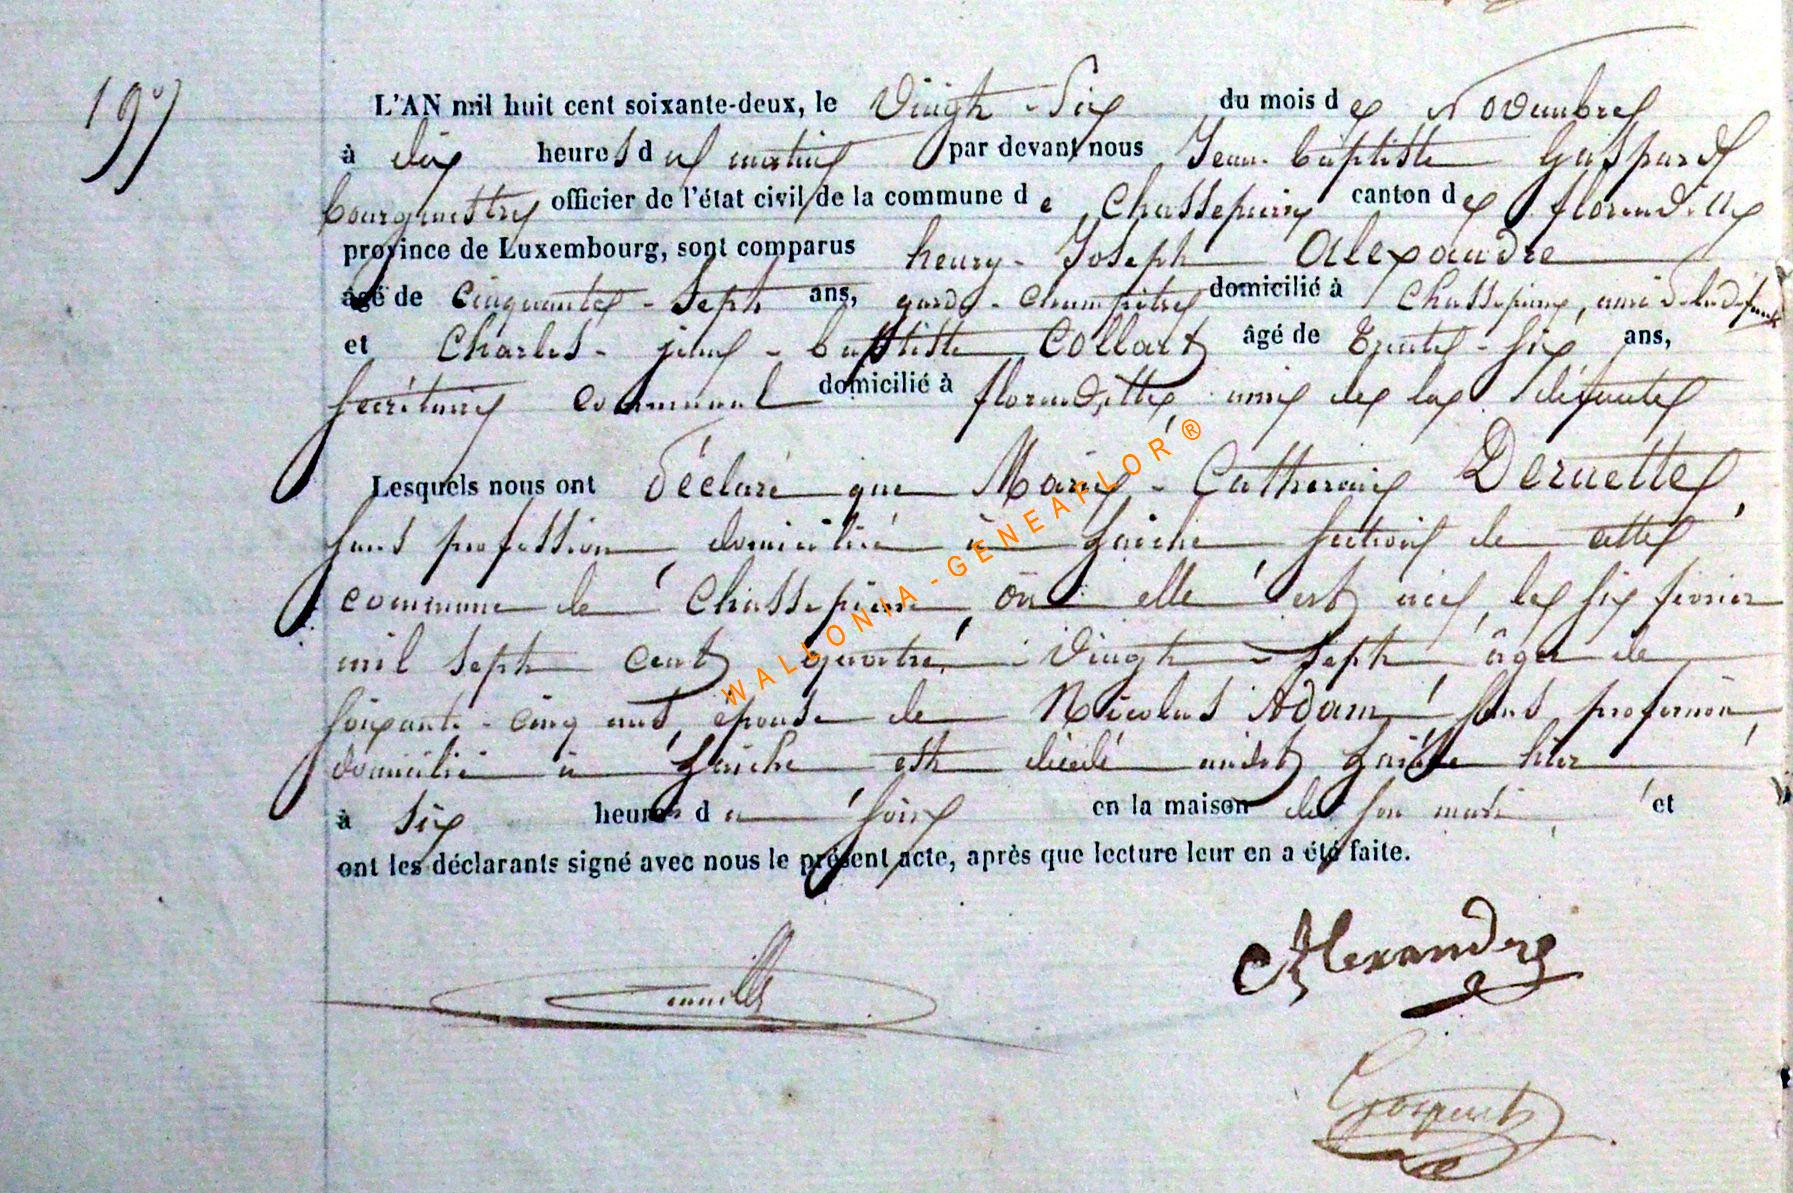 19°
L'AN mil huit cent soixante-deux, le Vingt-Six du mois de Novembre
à dix heures du matin par devant nous Jean-baptiste Gaspard
bourgmestre officier de l'état civil de la commune de Chassepierre canton de florenville
province de Luxembourg, sont comparus henry-Joseph Alexandre
âgé de Cinquante-sept ans, garde-champêtre domicilié à Chassepierre, ami de la défunte
et Charles-jean-baptiste Collart âgé de Trente-six ans,
secrétaire communal domicilié à florenville ami de la défunte
Lesquels nous ont déclaré que Marie-Catherine Deruette,
sans profession, domicilié à Laiche, section de cette
commune de Chassepierre, où elle est née, le six février
mil sept cent quatre-vingt-sept âgée de
soixante-cinq ans, épouse de Nicolas Adam, sans profession,
domicilié à Laiche est décédé audit Laiche hier
à six heures du soir en la maison de son mari et
ont les déclarants signé avec nous le présent acte, après que lecture leur en a été faite.
Alexandre
Gaspard
WALLONIA-GENEAFLOR®